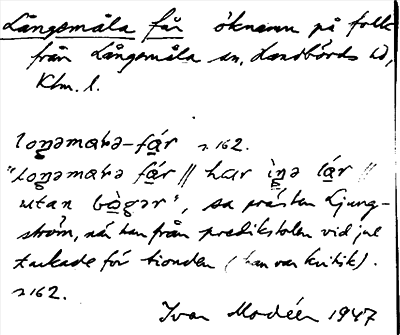 Långemåla får öknamn på folk
från Långemåla sn, Handbörds hd,
Klm. l.
loŋəmaɷə-fár s.162.
"loŋəmaɷə fár // har ìŋə lár //
utan bògər", sa prästen Ljung-
ström, när han från predikstolen vid jul
tackade för tionden (han var kritik).
s.162.
Ivar Modéer 1947